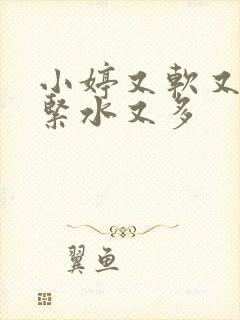 小婷又軟又
緊水又多
翼鱼